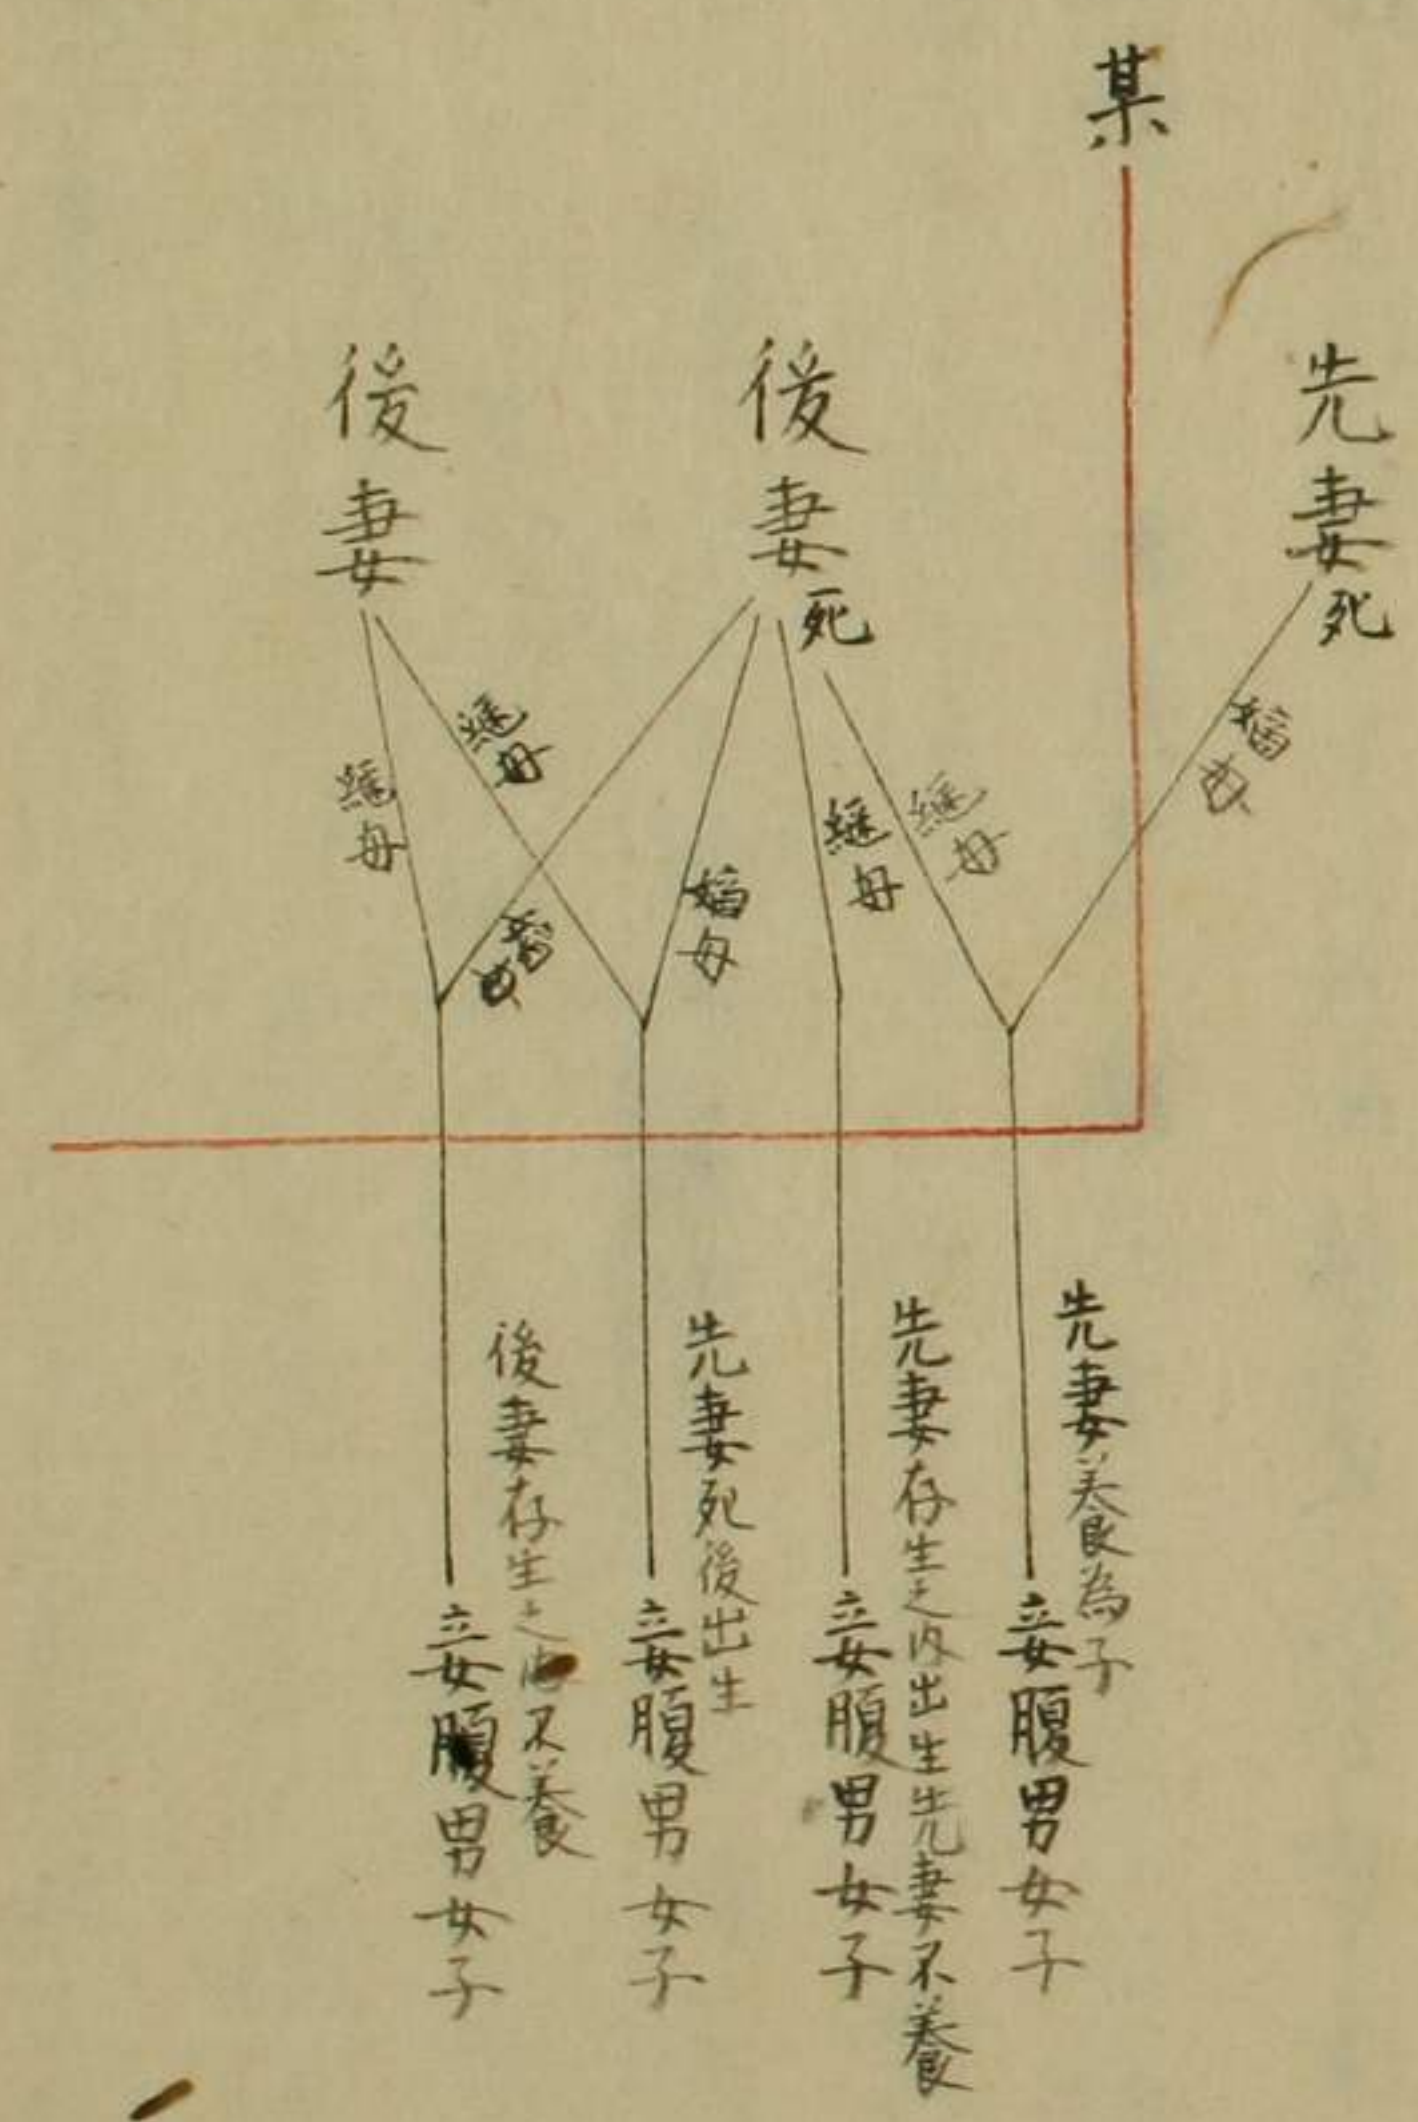 某
先妻死
嫡母
後妻死
継母
継母
嫡母
嫡母
後妻
継母
継母
先妻養為子
妾腹男女子
先妻存生之内出生先妻不養
妾腹男女子
先妻死後出生
妾腹男女子
後妻存生之内不養
妾腹男女子